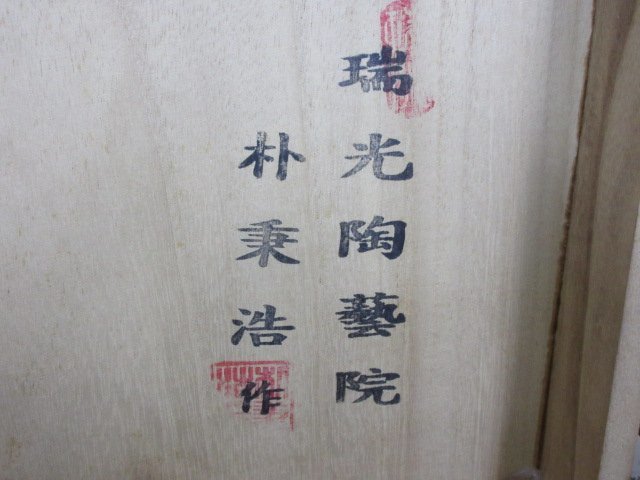 瑞光陶藝院
朴秉浩作